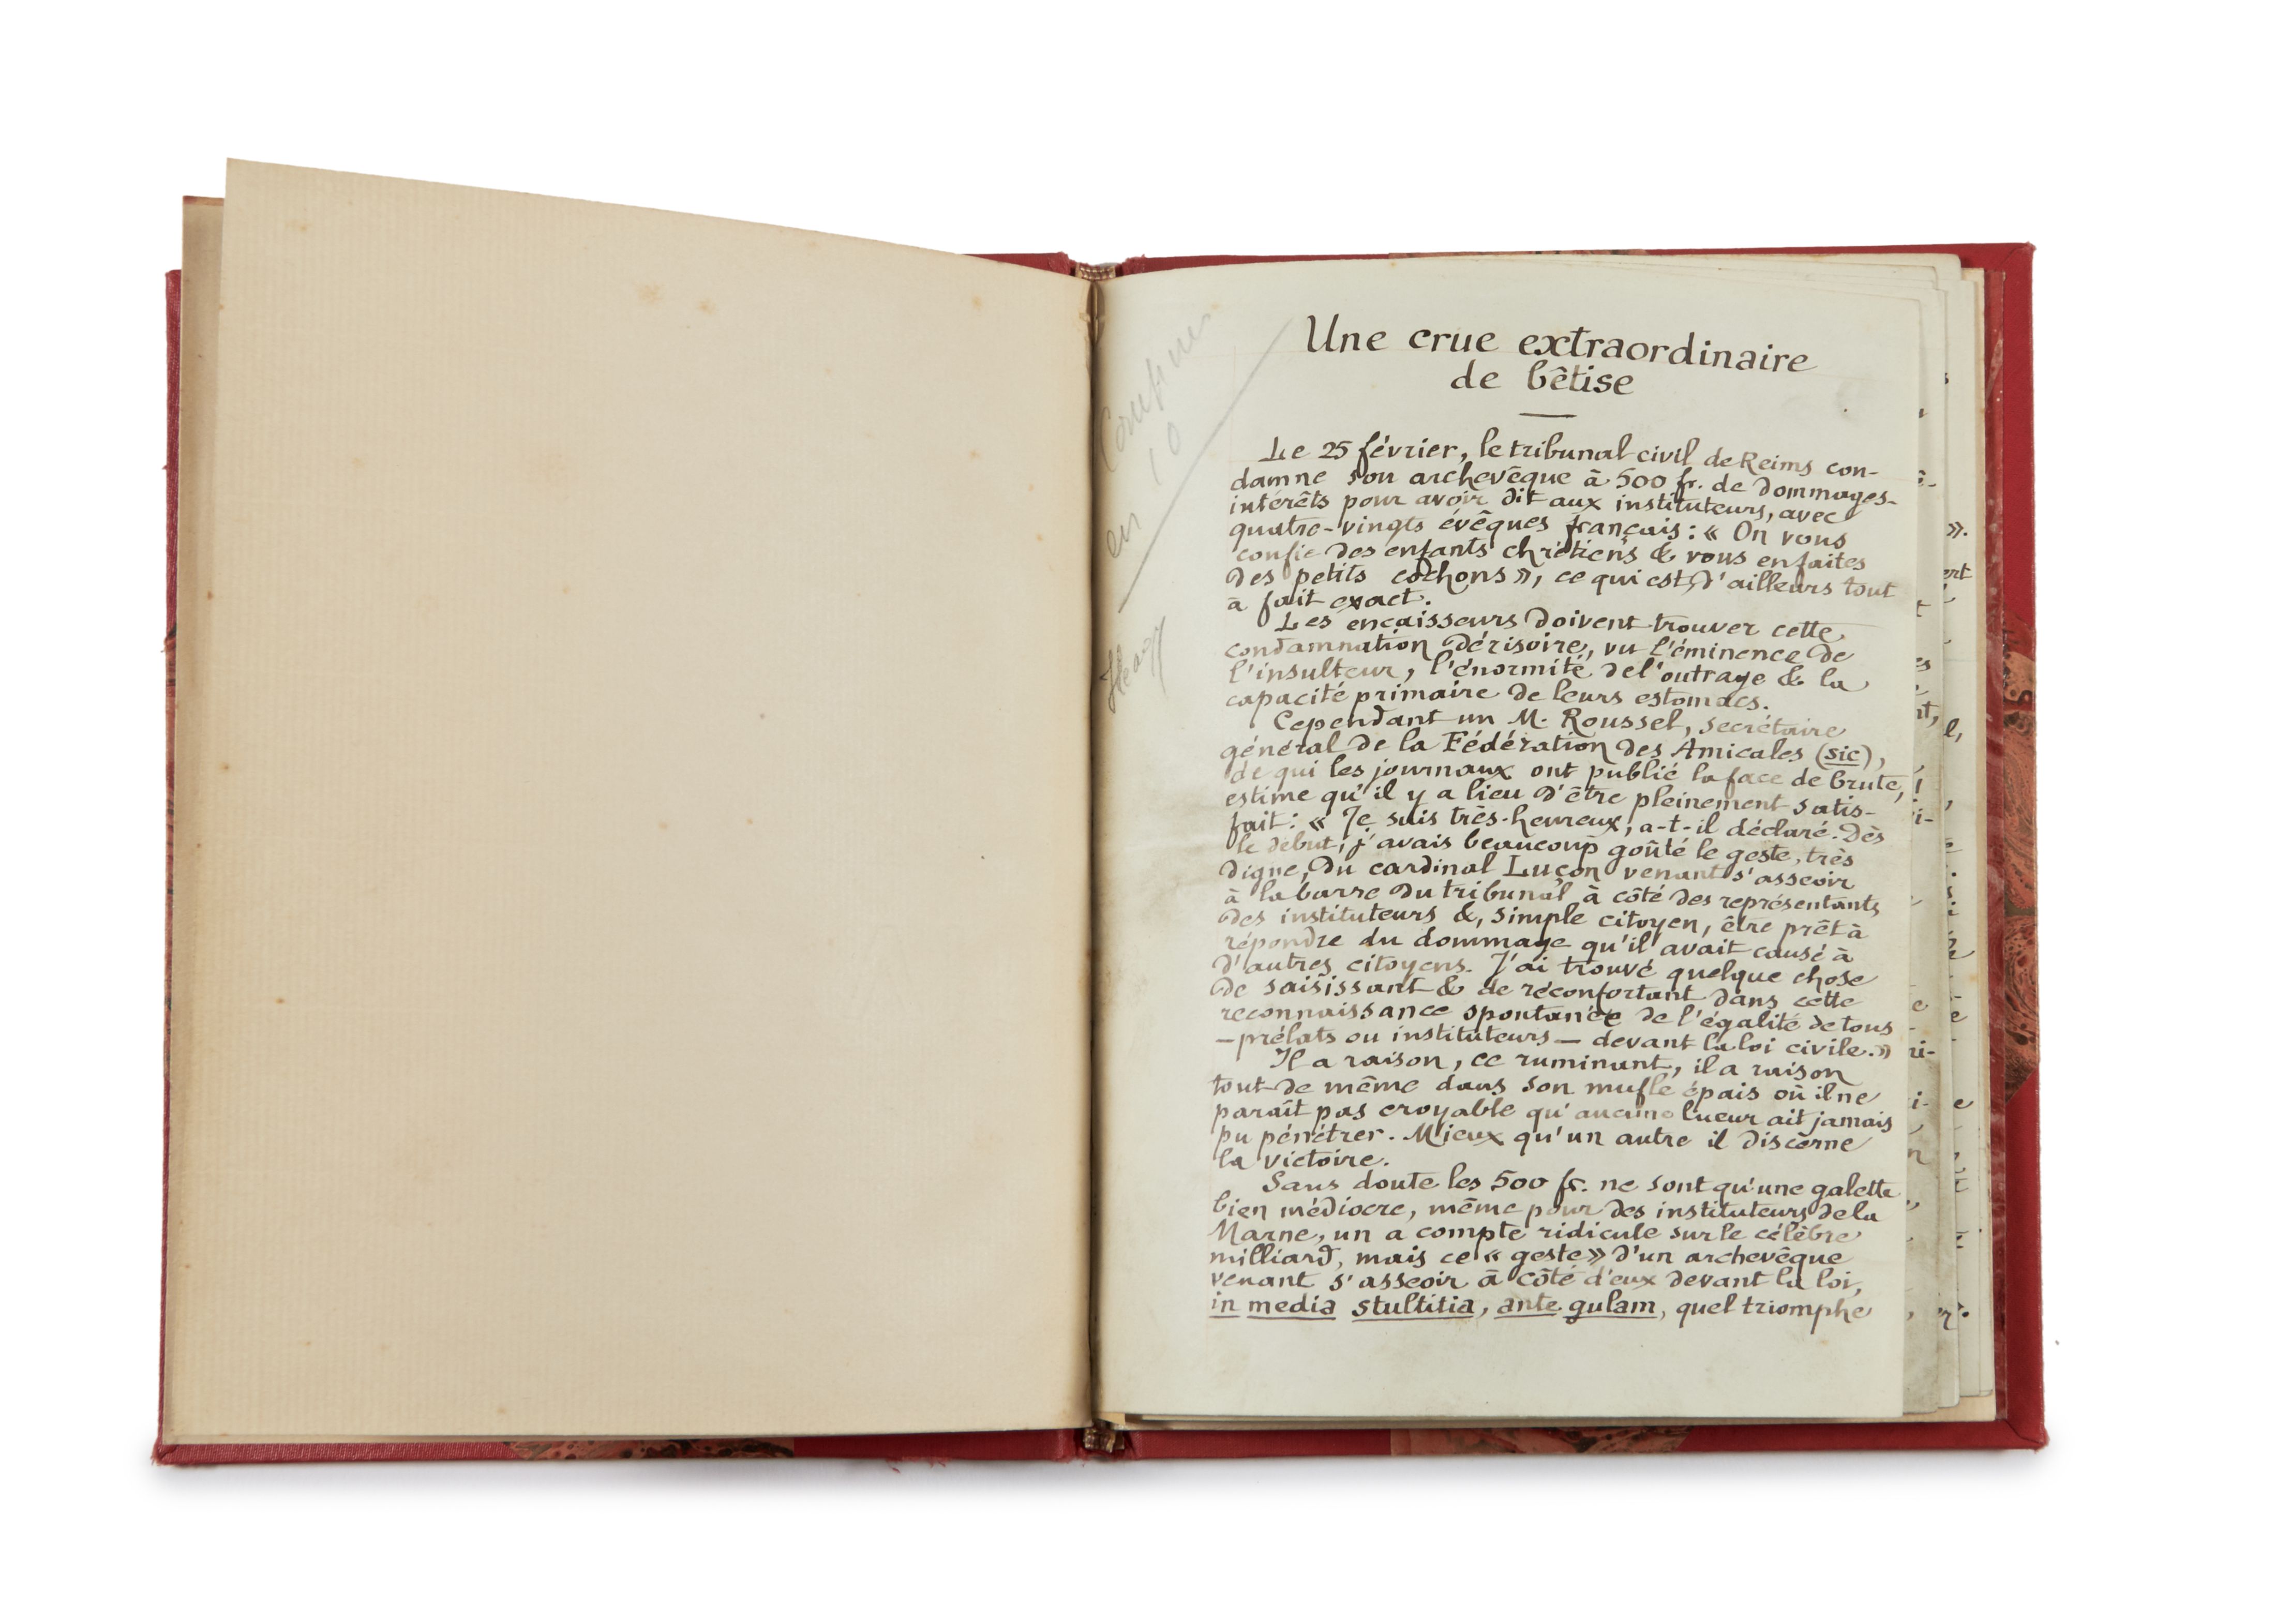 Une crue extraordinaire
de bêtise
Le 25 février, le tribunal civil de Reims con-
damne son archevêque à 500 fr. de dommages-
intérêts pour avoir dit aux instituteurs, avec
quatre-vingts évêques français : « On vous
confie des enfants chrétiens & vous en faites
des petits cochons », ce qui est, d'ailleurs tout
à fait exact.
Les encaisseurs doivent trouver cette
condamnation dérisoire, vu l'éminence de
l'insulteur, l'énormité de l'outrage & la
capacité primaire de leurs estomacs.
Cependant un M. Roussel, secrétaire
général de la Fédération des Amicales (sic),
de qui les journaux ont publié la face de brute,
estime qu'il y a lieu d'être pleinement satis-
fait : « Je suis très-heureux, a-t-il déclaré. Dès
le début, j'avais beaucoup goûté le geste, très
digne, du cardinal Luçon venant s'asseoir
à la barre du tribunal à côté des représentants
des instituteurs &, simple citoyen, être prêt à
répondre du dommage qu'il avait causé à
d'autres citoyens. J'ai trouvé quelque chose
de saisissant & de réconfortant dans cette
reconnaissance spontanée de l'égalité de tous
— prélats ou instituteurs — devant la loi civile. »
Il a raison, ce ruminant, il a raison
tout de même dans son mufle épais où il ne
paraît pas croyable qu'aucune lueur ait jamais
pu pénétrer. Mieux qu'un autre il discerne
la victoire.
Sans doute les 500 fr. ne sont qu'une galette
bien médiocre, même pour des instituteurs de la
Marne, un a compte ridicule sur le célèbre
milliard, mais ce « geste » d'un archevêque
venant s'asseoir à côté d'eux devant la loi,
in media stultitia, ante gulam, quel triomphe
en 10